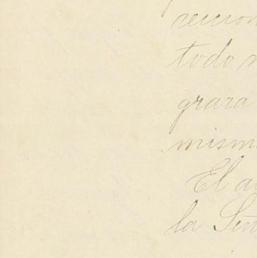 reccion
todo
grara
mism
El a
la Señ